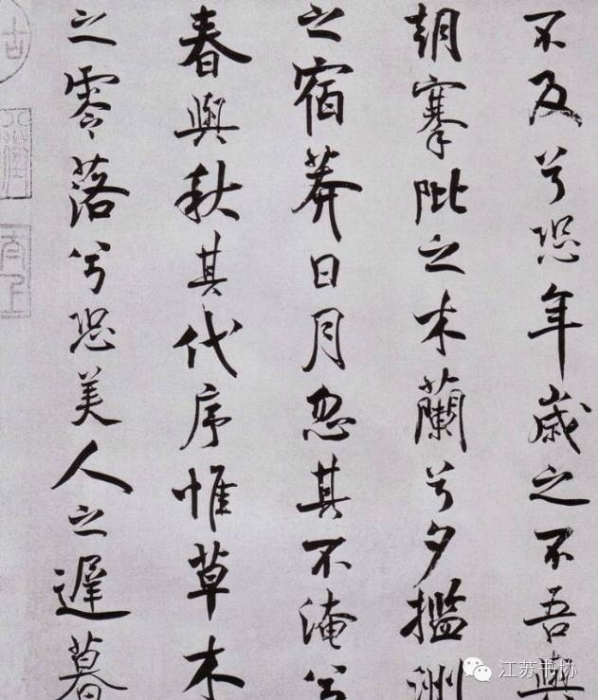 不及兮恐年歲之不吾與
朝搴阰之木蘭兮夕攬洲
之宿莽日月忽其不淹兮
春與秋其代序惟草木
之零落兮恐美人之遲暮
江苏书协